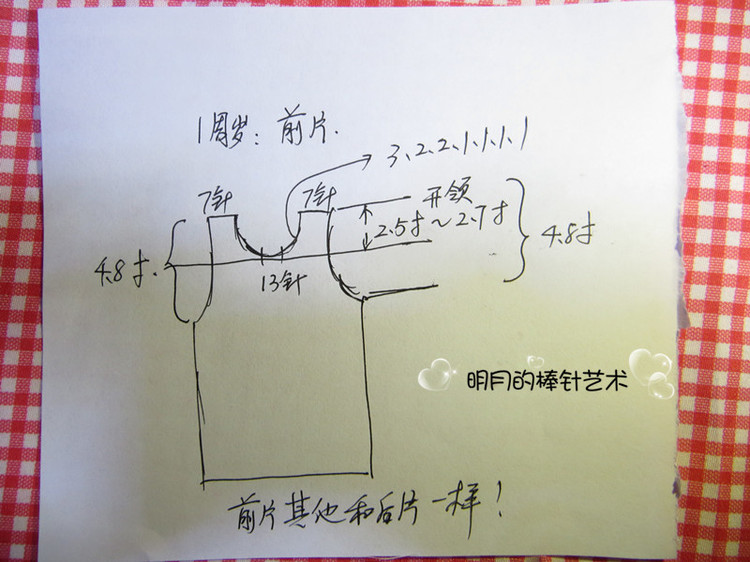 1周岁: 前片.
3.2.2.1.1.1.1
7针 7针
开领
2.5寸~2.7寸
4.8寸. 4.8寸
13针
明月的棒针艺术
前片其他和后片一样!